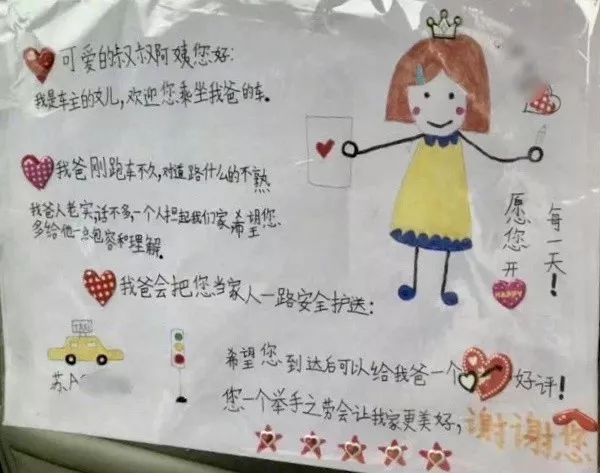 可爱的叔叔阿姨您好:
我是车主的女儿,欢迎您乘坐我爸的车。
我爸刚跑车不久,对道路什么的不熟
我爸人老实,话不多,一个人担起我们家希望您
多给他一点包容和理解.
我爸会把您当家人一路安全护送:
愿您开
HAPPY
每一天!
TAXI
苏A
希望您到达后可以给我爸一个好评!
您一个举手之劳会让我家更美好,谢谢您